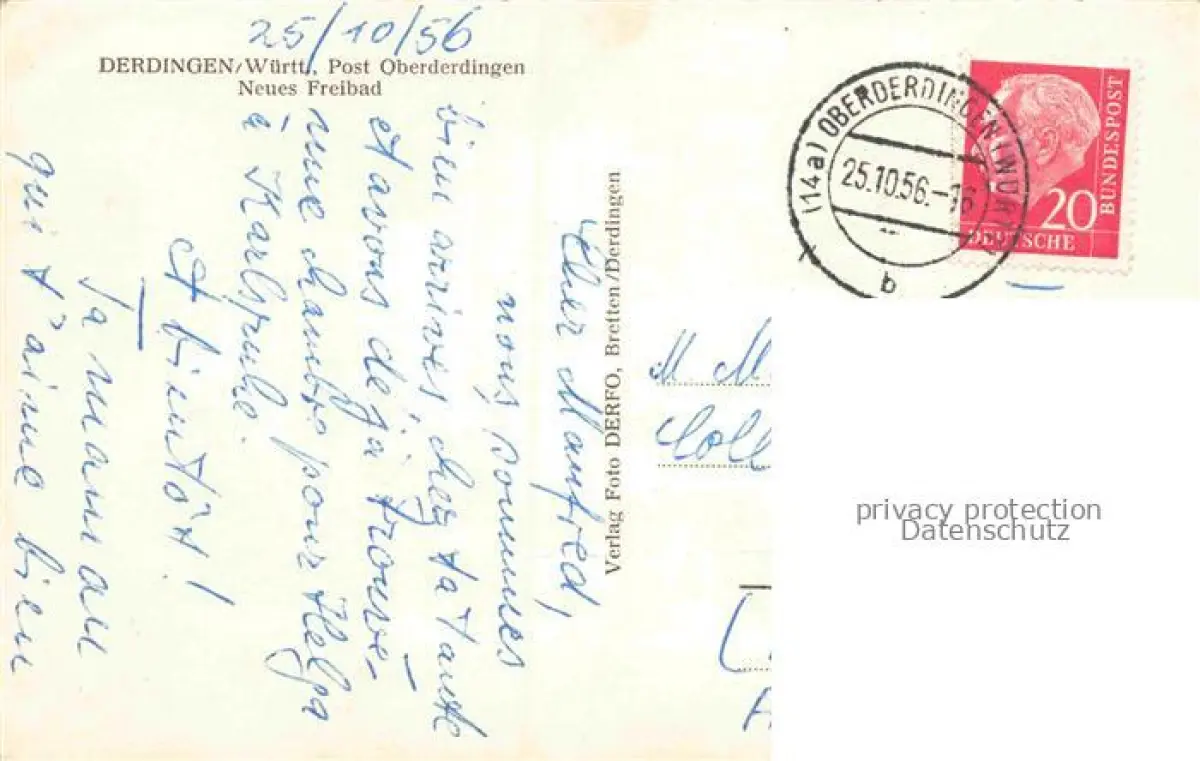 25/10/56
DERDINGEN/Württ., Post Oberderdingen
Neues Freibad
Cher Manfred,
nous sommes
bien arrivés, chez ta tante
et avons déja trouvé-
une chambre pour Helga
à Karlsruhe.
A bientôt!
Ta maman
qui t'aime bien
Verlag Foto DERFO, Bretten/Derdingen
(14a) OBERDERDINGEN (WÜRTT)
25.10.56.-16
b
20
DEUTSCHE
BUNDESPOST
M. M
Coll
privacy protection
Datenschutz